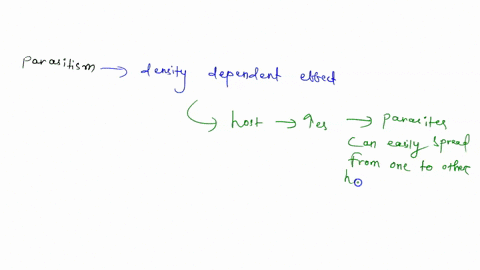 parasitism → density dependent effect
host → ↑es → parasites
can easily spread
from one to other
h